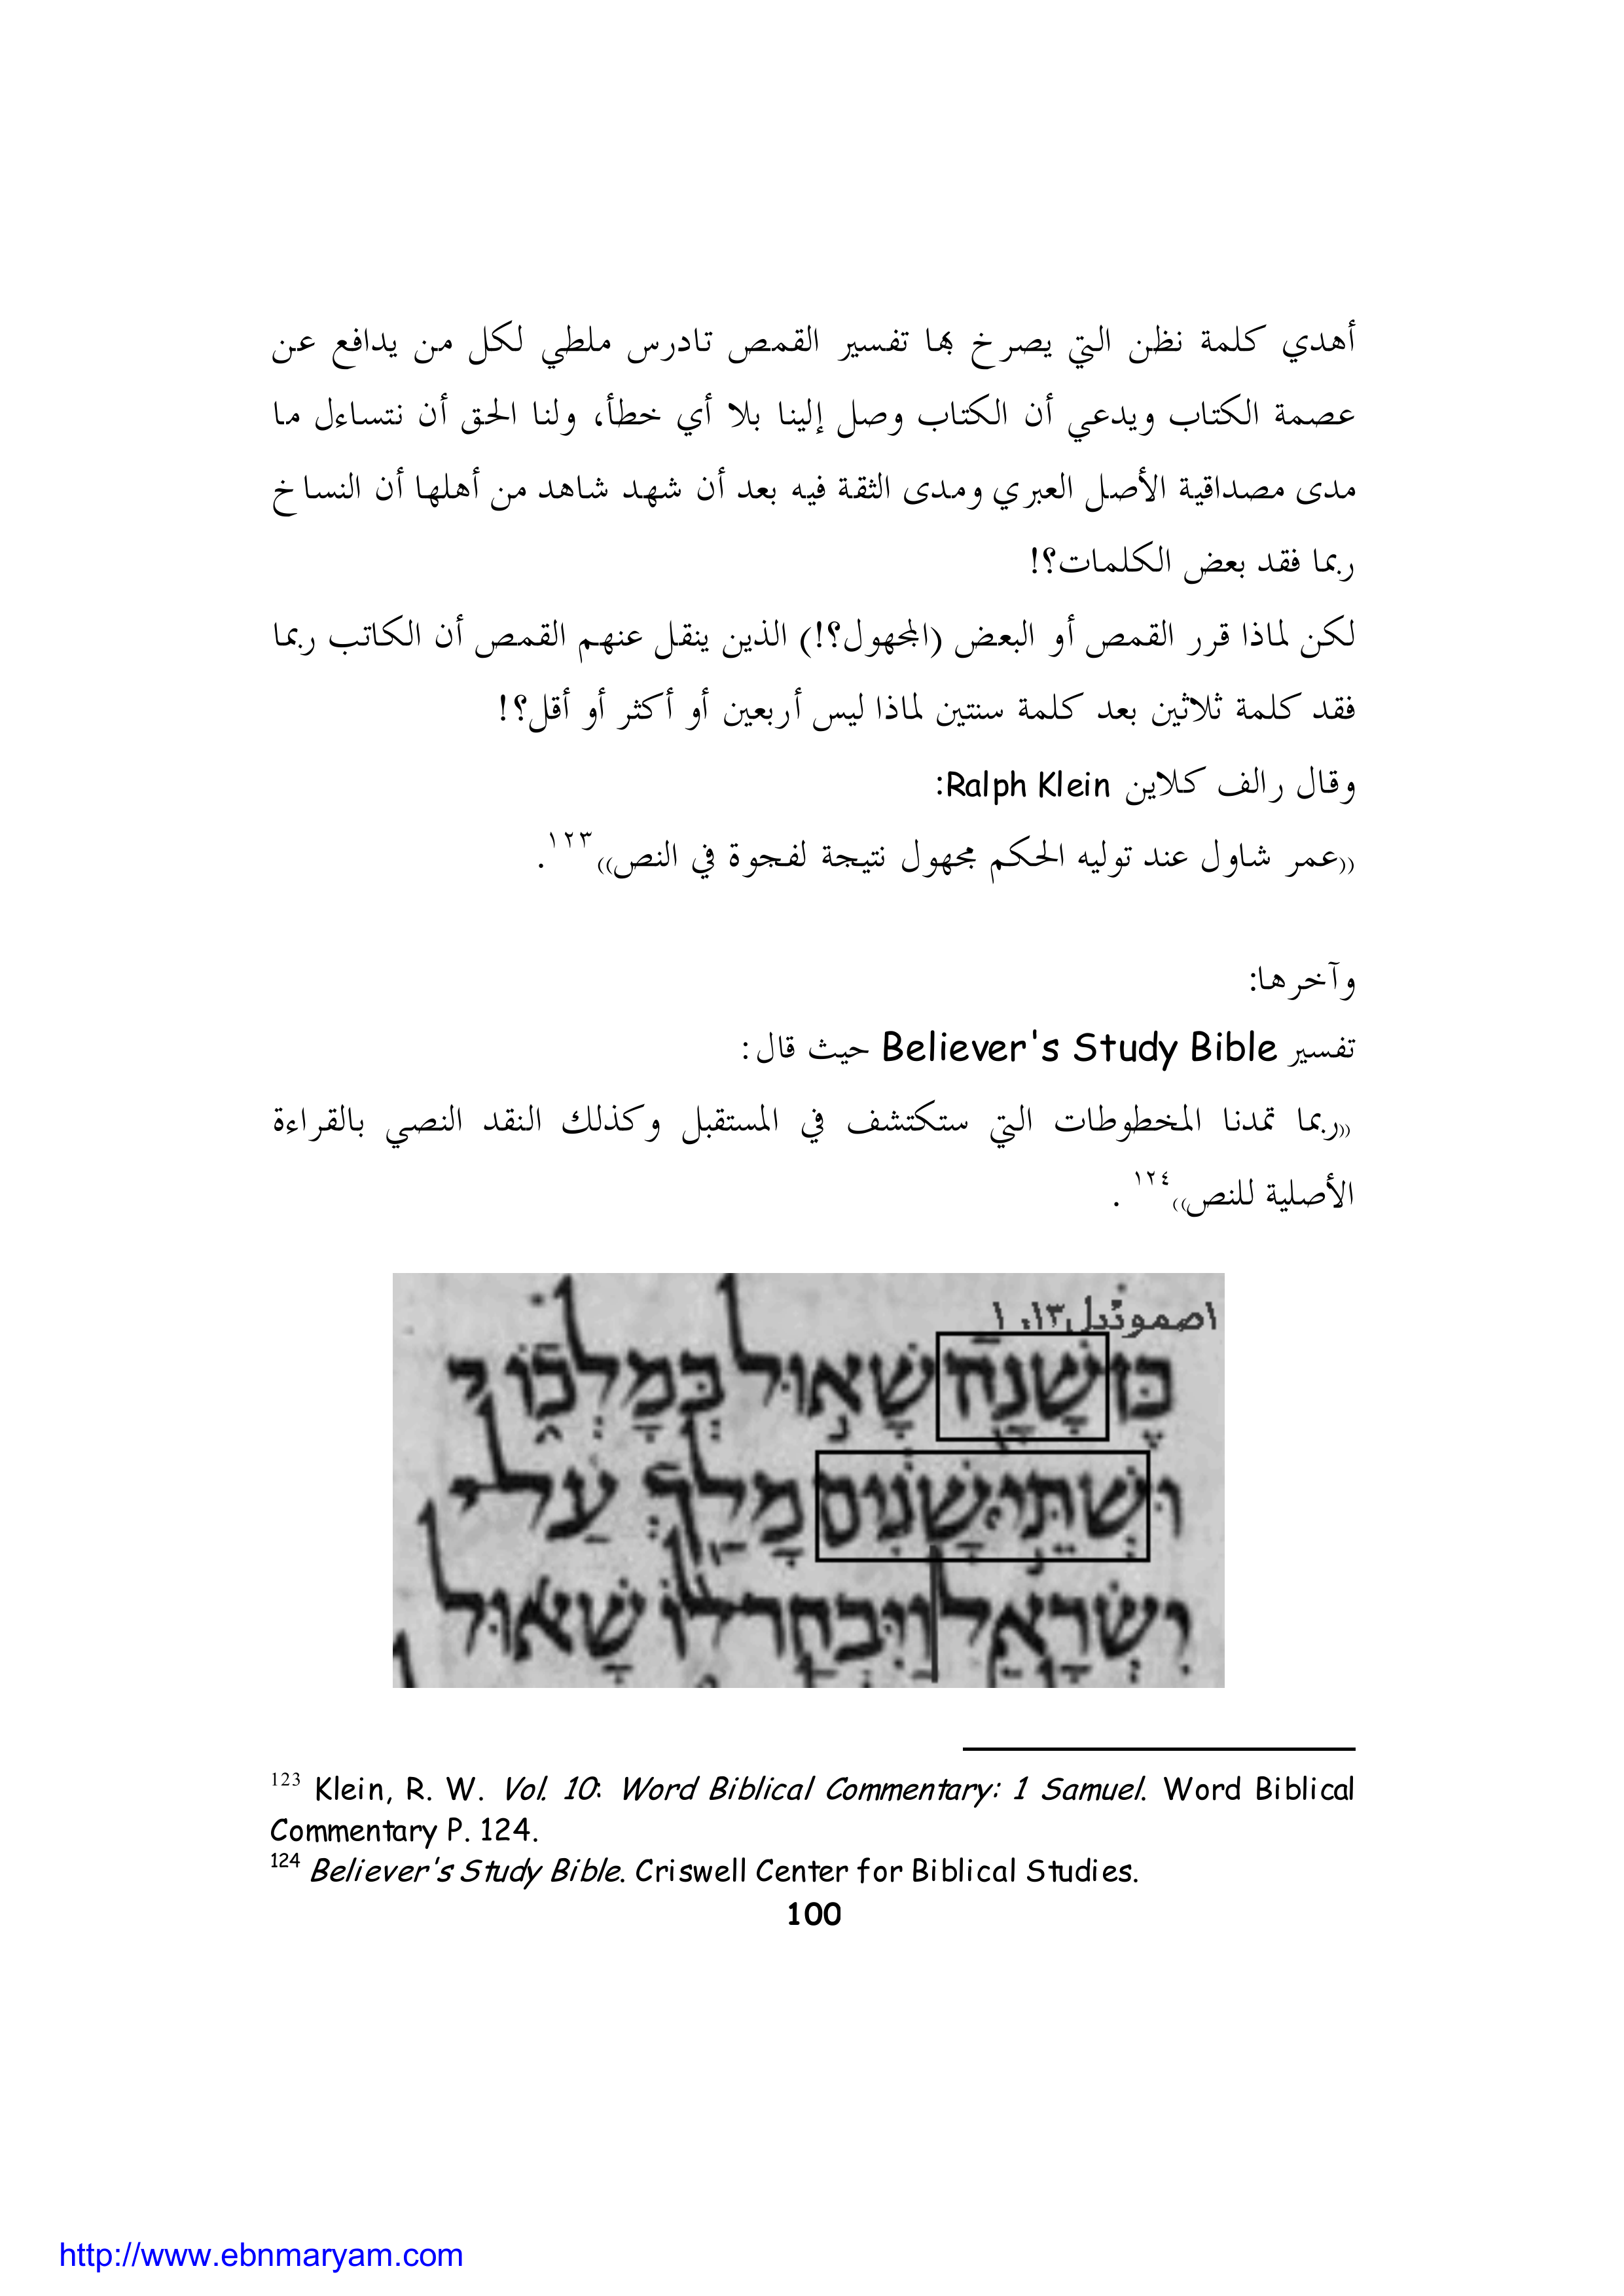 أهدي كلمة نظن التي يصرخ بها تفسير القمص تادرس ملطي لكل من يدافع عن
عصمة الكتاب ويدعي أن الكتاب وصل إلينا بلا أي خطأ، ولنا الحق أن نتساءل ما
مدى مصداقية الأصل العبري ومدى الثقة فيه بعد أن شهد شاهد من أهلها أن النساخ
ربما فقد بعض الكلمات؟!
لكن لماذا قرر القمص أو البعض (المجهول؟!) الذين ينقل عنهم القمص أن الكاتب ربما
فقد كلمة ثلاثين بعد كلمة سنتين لماذا ليس أربعين أو أكثر أو أقل؟!
وقال رالف كلاين Ralph Klein:
((عمر شاول عند توليه الحكم مجهول نتيجة لفجوة في النص))١٢٣.
وآخرها:
تفسير Believer's Study Bible حيث قال:
((ربما تمدنا المخطوطات التي ستكتشف في المستقبل وكذلك النقد النصي بالقراءة
الأصلية للنص))١٢٤ .
١صموئيل١٣، ١
בֶּן שָׁנָה שָׁאוּל בְּמָלְכוֹ
וּשְׁתֵּי שָׁנִים מָלַךְ עַל
יִשְׂרָאֵל וַיִּבְחַר לוֹ שָׁאוּל
123 Klein, R. W. Vol. 10: Word Biblical Commentary: 1 Samuel. Word Biblical
Commentary P. 124.
124 Believer's Study Bible. Criswell Center for Biblical Studies.
100
http://www.ebnmaryam.com